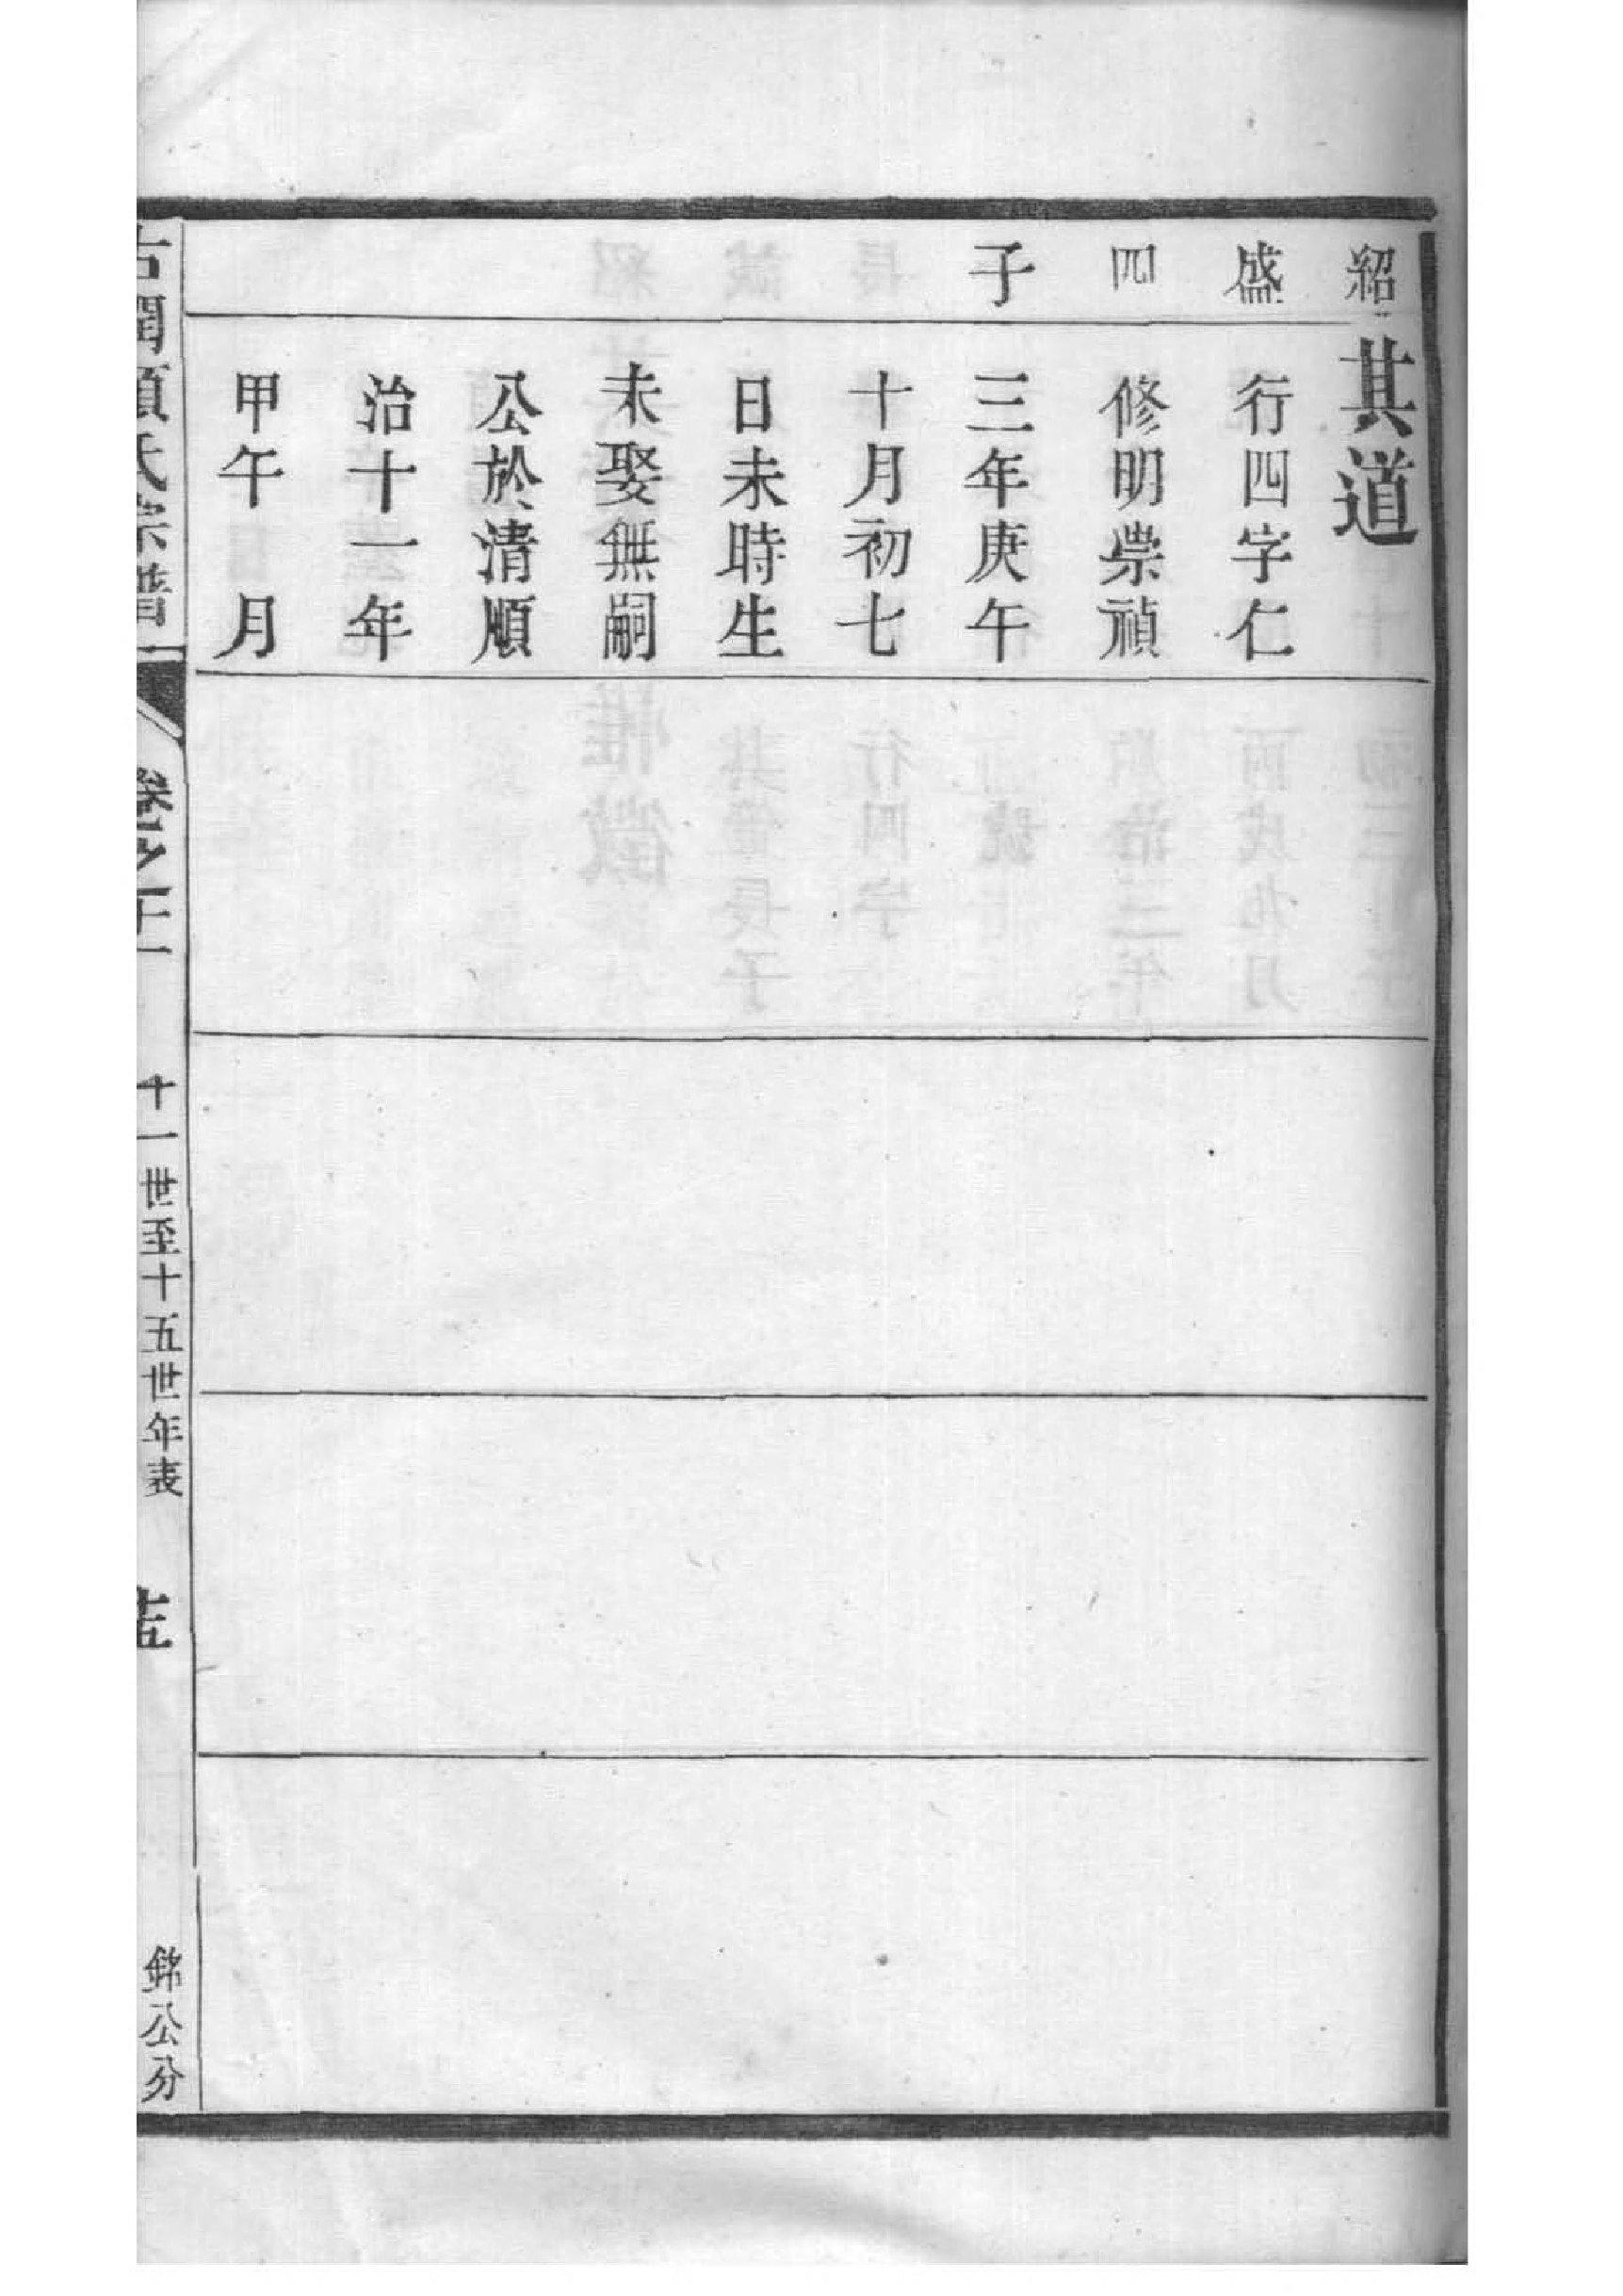 紹盛四子
其道
行四字仁
修明崇禎
三年庚午
十月初七
日未時生
未娶無嗣
公於清順
治十一年
甲午 月
古潤顧氏宗譜
卷之十一
十一世至十五世年表
銘公分